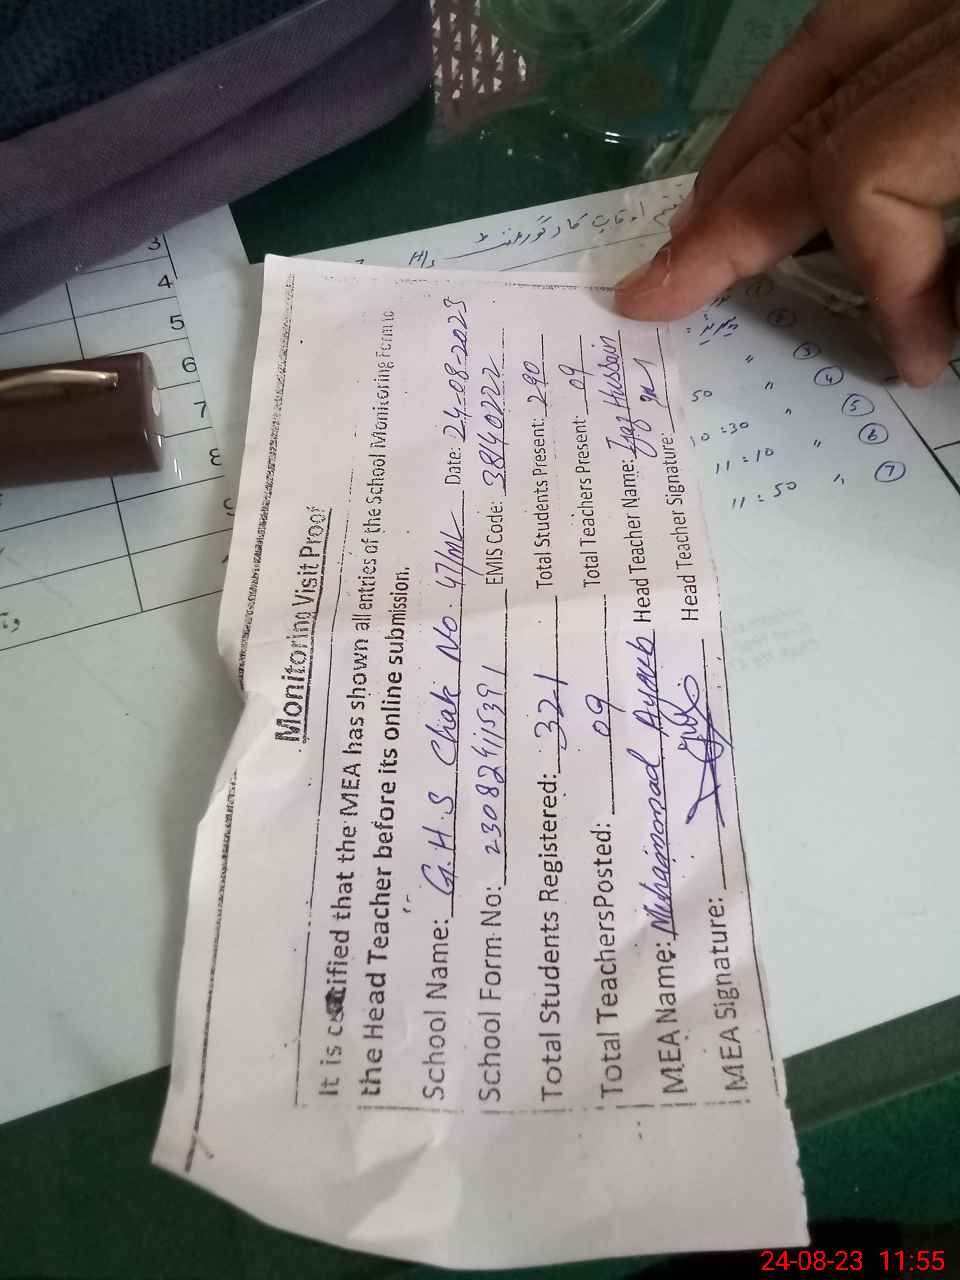 Monitoring Visit Proof
It is certified that the MEA has shown all entries of the School Monitoring Form to
the Head Teacher before its online submission.
School Name: G.H.S Chak No. 47/ML Date: 24-08-2023
School Form No: 230824115391 EMIS Code: 38140222
Total Students Registered: 321 Total Students Present: 290
Total TeachersPosted: 09 Total Teachers Present: 09
MEA Name: Muhammad Ayaub Head Teacher Name: Ijaz Hussain
MEA Signature: Head Teacher Signature:
3
4
5
6
7
8
50
10:30
11:10
11:50
3
4
5
6
7
24-08-23 11:55